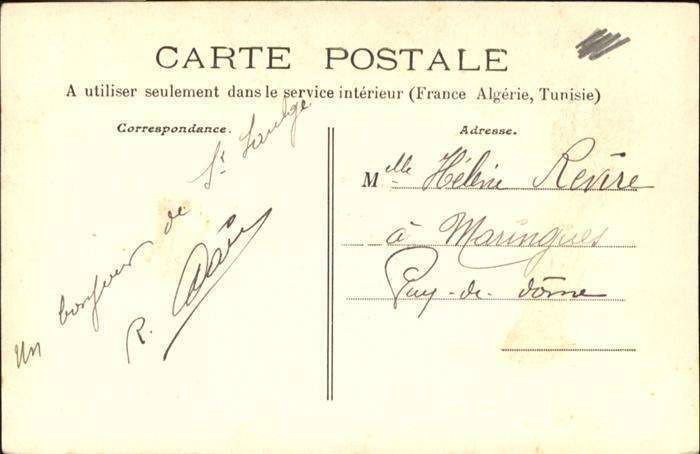 CARTE POSTALE
A utiliser seulement dans le service intérieur (France Algérie, Tunisie)
Correspondance.
Adresse.
Un bonjour de St Saulge
R.
Mlle Hélène Revire
à Maringues
Puy-de-dôme